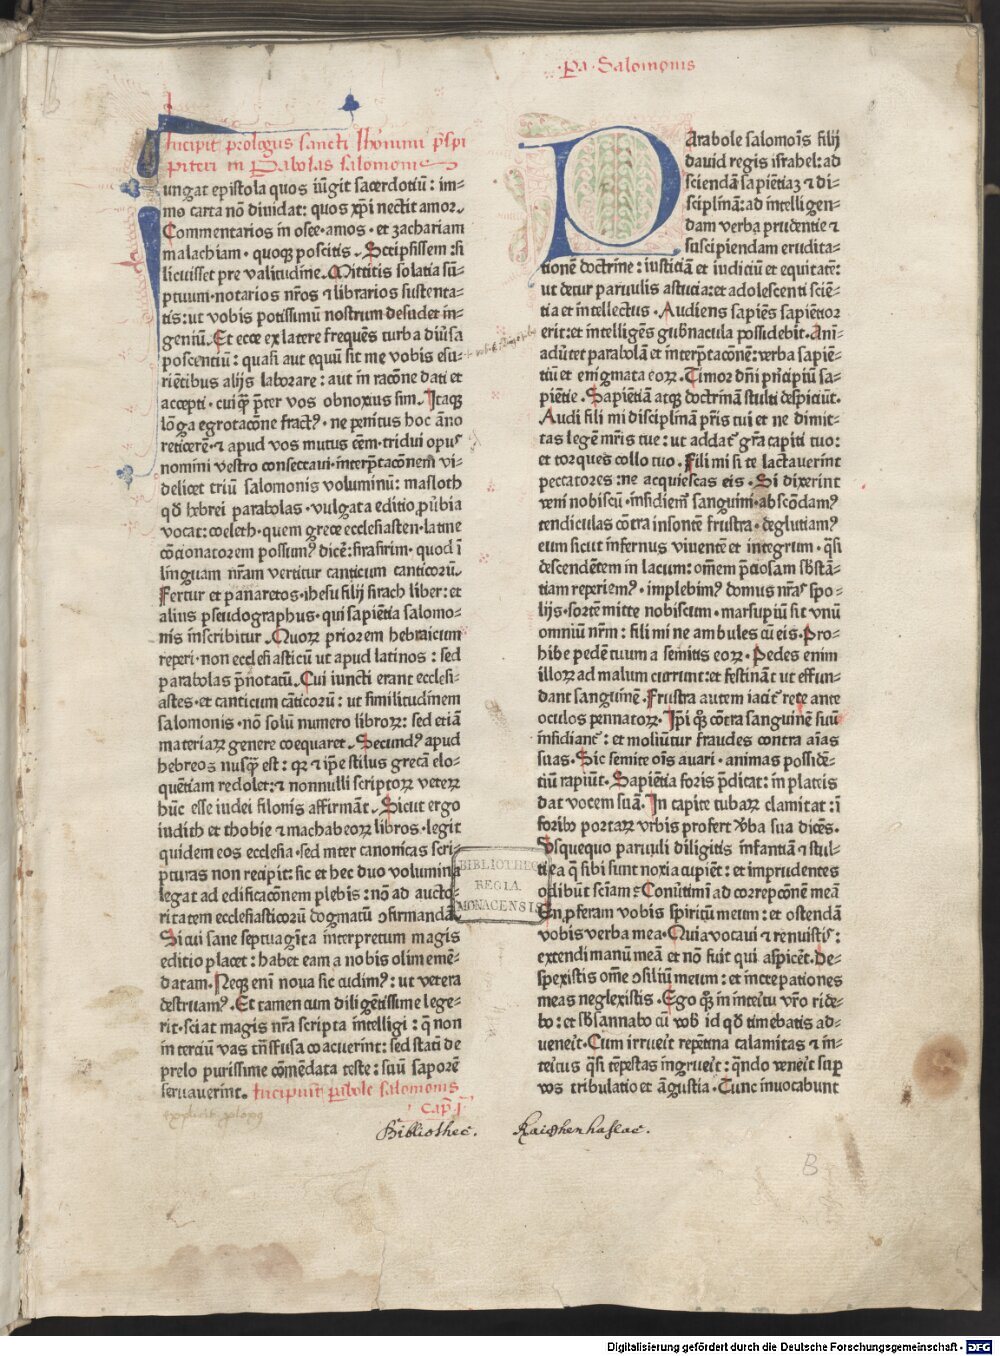 ·Pa· Salomonis
Incipit prologus sancti Iheronimi p̄sbi
piteri in Pabolas salomonis
Iungat epistola quos iūgit sacerdotiū: im-
mo carta nō diuidat: quos xp̄i nectit amor.
Commentarios in osee· amos· et zachariam
malachiam· quoqꝫ poscitis· Scripsissem: si
licuisset pre valitudine. Mittitis solatia sū-
ptuum· notarios nr̄os ⁊ librarios sustenta-
tis: ut vobis potissimū nostrum desudet in-
geniū. Et ecce ex latere frequēs turba diūsa
poscentiū: quasi aut equū sit me vobis esu-
riētibus alijs laborare: aut in racōne dati et
accepti· cuiqꝫ p̄ter vos obnoxius sim. Itaqꝫ
lōga egrotacōne fractꝰ· ne penitus hoc āno
reticerē· ⁊ apud vos mutus eēm· tridui opus
nomini vestro consecraui· interp̄tacōnem vi-
delicet triū salomonis voluminū: masloth
qd̄ hebrei parabolas· vulgata editio ꝓūbia
vocat: coeleth· quem grece ecclesiasten· latine
cōcionatorem possumꝰ dicē: sirasirim· quod ī
linguam nr̄am vertitur canticum canticorū.
Fertur et panaretos· ihesu filij sirach liber: et
alius pseudographus· qui sapiētia salomo-
nis īnscribitur. Quorꝝ priorem hebraicum
reperi· non ecclesiasticū ut apud latinos: sed
parabolas p̄notatū. Cui iuncti erant ecclesi-
astes· et canticum cāticorū: ut similitudinem
salomonis· nō solū numero librorꝝ: sed etiā
materiarꝝ genere coequaret. Secundꝰ apud
hebreos nusqꝫ est: qꝛ et ip̄e stilus grecā elo-
quētiam redolet: ⁊ nonnulli scriptorꝝ veterꝝ
hūc esse iudei filonis affirmāt. Sicut ergo
iudith et thobie ⁊ machabeorꝝ libros· legit
quidem eos ecclesia· sed inter canonicas scri-
pturas non recipit: sic et hec duo volumina
legat ad edificacōnem plebis: nō ad aucto-
ritatem ecclesiasticorū dogmatū ↄfirmandā.
Si cui sane septuagīta interpretum magis
editio placet: habet eam a nobis olim emē-
datam. Neqꝫ enī noua sic cudimꝰ: ut vetera
destruamꝰ. Et tamen cum diligētissime lege-
rit· sciat magis nr̄a scripta intelligi: q̄ non
in terciū vas trāsfusa coacuerint: sed statī de
prelo purissime cōmēdata teste: suū saporē
seruauerint. Incipiunt pabole salomonis
Cap̄ I
Parabole salomoīs filij
dauid regis israhel: ad
sciendā sapiētiaꝫ ⁊ di-
sciplinā: ad intelligen-
dam verba prudentie ⁊
suscipiendam erudita-
tionē doctrine: iusticiā et iudiciū et equitatē:
ut detur paruulis astucia: et adolescenti sciē-
tia et intellectus. Audiens sapiēs sapiētior
erit: et intelligēs gub̄nacula possidebit. Ani-
aduītet parabolā et interp̄tacōnē: verba sapiē-
tiū et enigmata eorꝝ. Timor dn̄i prīcipiū sa-
piētie. Sapiētiā atqꝫ doctrinā stulti despiciūt.
Audi fili mi disciplinā pr̄is tui et ne dimit-
tas legē mr̄is tue: ut addaꞇ̄ gr̄a capiti tuo:
et torques collo tuo. Fili mi si te lactauerint
peccatores: ne acquiescas eis. Si dixerint
veni nobiscū· insidiem̄ sanguini· abscōdamꝰ
tendiculas cōtra insontē frustra· deglutiamꝰ
eum sicut infernus viuentē et integrum· q̄si
descendētem in lacum: omēm p̄ciosam sb̄stā-
tiam reperiemꝰ· implebimꝰ domus nrās spo-
lijs· sortē mitte nobiscum· marsupiū sit vnū
omniū nr̄m: fili mi ne ambules cū eis. Pro-
hibe pedē tuum a semitis eorꝝ. Pedes enim
illorꝝ ad malum currunt: et festināt ut effun-
dant sanguinē. Frustra autem iaciꞇ̄ rete ante
oculos pennatorꝝ. Ip̄i qꝫ cōtra sanguinē suū
insidianꞇ̄: et moliūtur fraudes contra aīas
suas. Sic semite oīs auari· animas possidē-
tiū rapiūt. Sapiētia foris p̄dicat: in plateis
dat vocem suā. In capite turbarꝝ clamitat: ī
foribꝰ portarꝝ vrbis profert v̄ba sua dicēs.
Usquequo paruuli diligitis infantiā ⁊ stul-
ti ea q̄ sibi sunt noxia cupiēt: et imprudentes
odibūt sciā̄m: Conūtimī ad correpcōnē meā
En ꝓferam vobis spiritū meum: et ostendā
vobis verba mea. Quia vocaui ⁊ renuistis:
extendi manū meā et nō fuit qui aspicēt. De-
spexistis om̄e ↄsiliū meum: et increpationes
meas neglexistis. Ego qꝫ in īteritu vr̄o ride-
bo: et sb̄sannabo cū vob̄ id qd̄ timebatis ad-
uenerit. Cum irruerit repētina calamitas ⁊ in-
teritus q̄si tēpestas ingruerit: q̄ndo venerit sup̄
vos tribulatio et āgustia. Tunc inuocabunt
BIBLIOTHECA
REGIA
MONACENSIS
explicit plogꝰ
Bibliothec. Kaishenhasac.
B
Digitalisierung gefördert durch die Deutsche Forschungsgemeinschaft - DFG